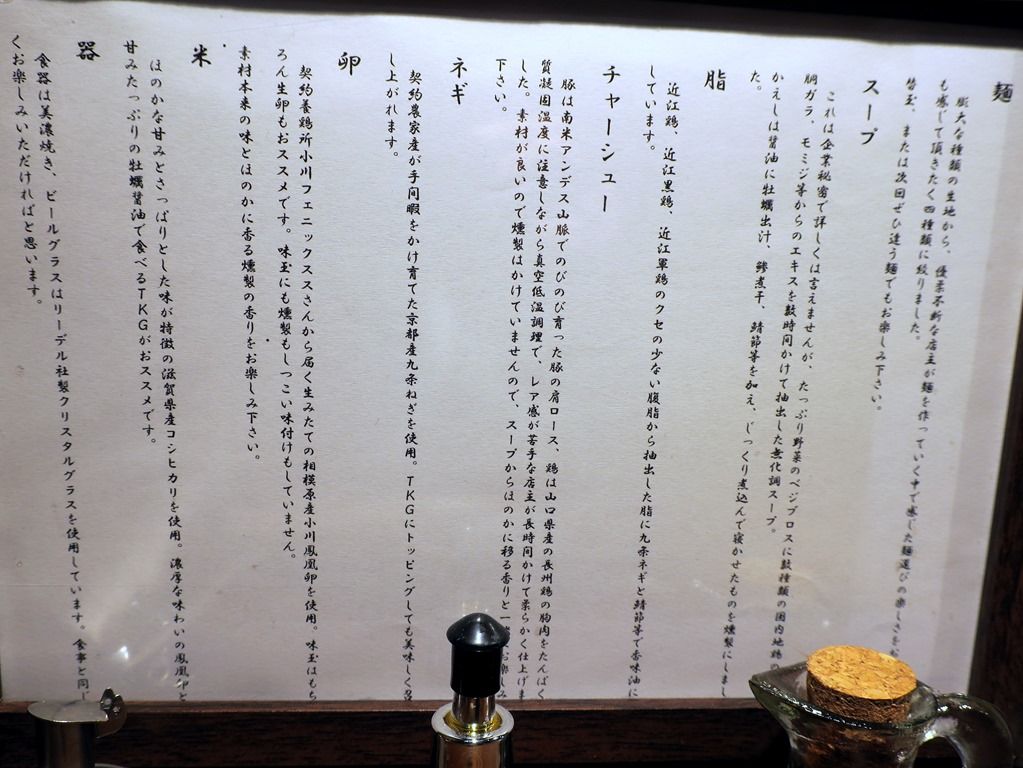 麺
膨大な種類の生地から、優柔不断な店主が麺を作っていく中で感じた麺選びの楽しさをお
も感じて頂きたく四種類に絞りました。
替玉、または次回ぜひ違う麺でもお楽しみ下さい。
スープ
これは企業秘密で詳しくは言えませんが、たっぷり野菜のベジブロスに数種類の国内地鶏の
胴ガラ、モミジ等からのエキスを数時間かけて抽出した無化調スープ。
かえしは醤油に牡蠣出汁、鯵煮干、鯖節等を加え、じっくり煮込んで寝かせたものを燻製にしまし
た。
脂
近江鶏、近江黒鶏、近江軍鶏のクセの少ない腹脂から抽出した脂に九条ネギと鯖節等で香味油に
しています。
チャーシュー
豚は南米アンデス山脈でのびのび育った豚の肩ロース、鶏は山口県産の長州鶏の胸肉をたんぱく
質凝固温度に注意しながら真空低温調理で、レア感が苦手な店主が長時間かけて柔らかく仕上げま
した。素材が良いので燻製はかけていませんので、スープからほのかに移る香りと一緒にお楽しみ
下さい。
ネギ
契約農家産が手間暇をかけ育てた京都産九条ねぎを使用。TKGにトッピングしても美味しく召
し上がれます。
卵
契約養鶏所小川フェニックスさんから届く生みたての相模原産小川鳳凰卵を使用。味玉はもち
ろん生卵もおススメです。味玉にも燻製もしつこい味付けもしていません。
素材本来の味とほのかに香る燻製の香りをお楽しみ下さい。
米
ほのかな甘みとさっぱりとした味が特徴の滋賀県産コシヒカリを使用。濃厚な味わいの鳳凰卵と
甘みたっぷりの牡蠣醤油で食べるTKGがおススメです。
器
食器は美濃焼き、ビールグラスはリーデル社製クリスタルグラスを使用しています。食事と同じ
くお楽しみいただければと思います。